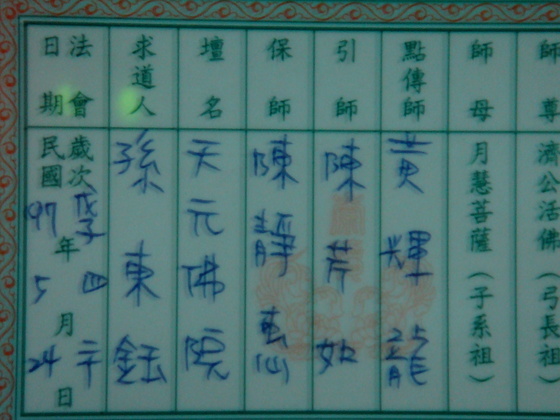 師尊
濟公活佛（弓長祖）
師母
月慧菩薩（子系祖）
點傳師
黃輝龍
引師
陳芹
保師
陳靜
壇名
天元佛院
求道人
孫東鈺
法會
日期
歲次戊子四
民國97年5月24日